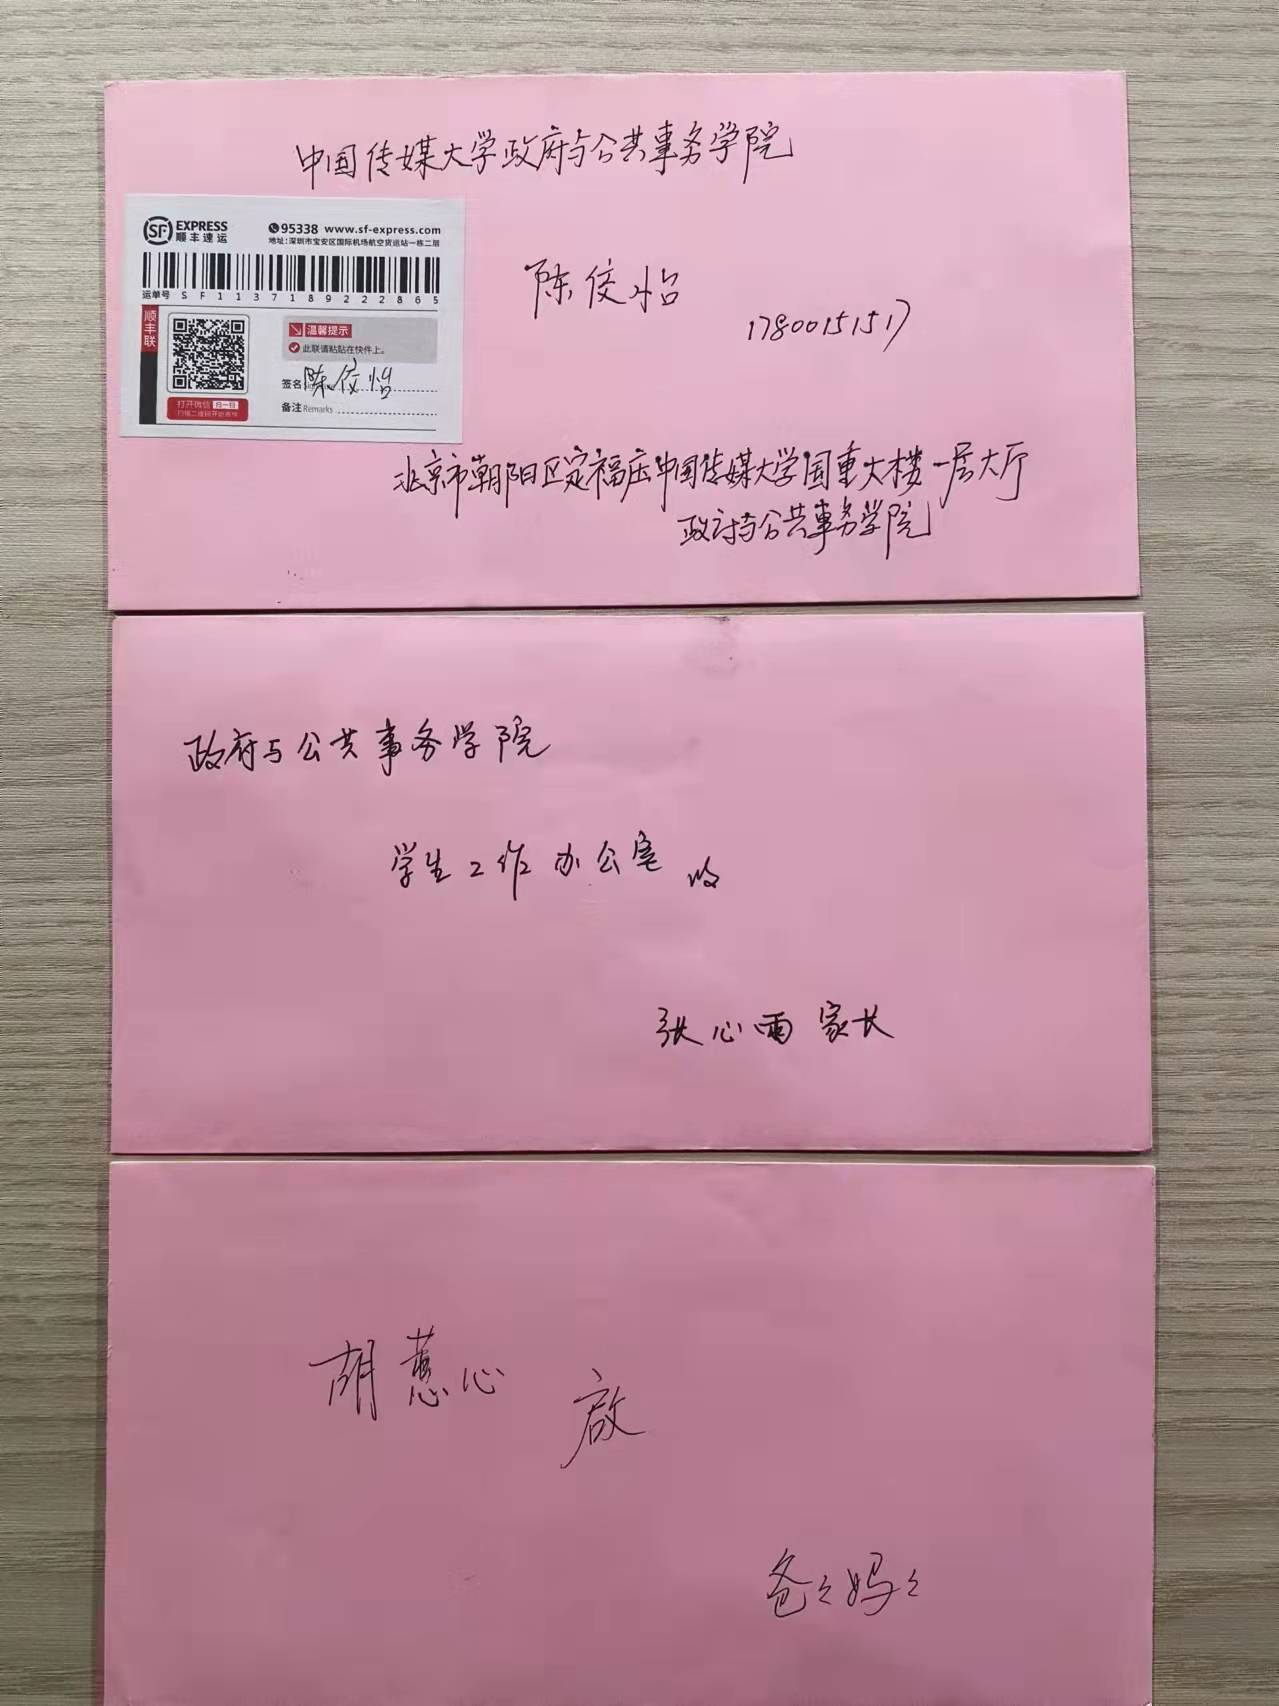 中国传媒大学政府与公共事务学院
SF EXPRESS
顺丰速运
95338 www.sf-express.com
地址:深圳市宝安区国际机场航空货运站一栋二层
运单号 SF1137189222865
顺丰联
温馨提示
此联请粘贴在快件上。
签名 陈佼怡
备注 Remarks
打开微信 扫一扫
陈佼怡
17800151517
北京市朝阳区定福庄中国传媒大学国重大楼一层大厅
政府与公共事务学院
政府与公共事务学院
学生工作办公室 收
张心雨家长
胡蕙心 启
爸々妈々